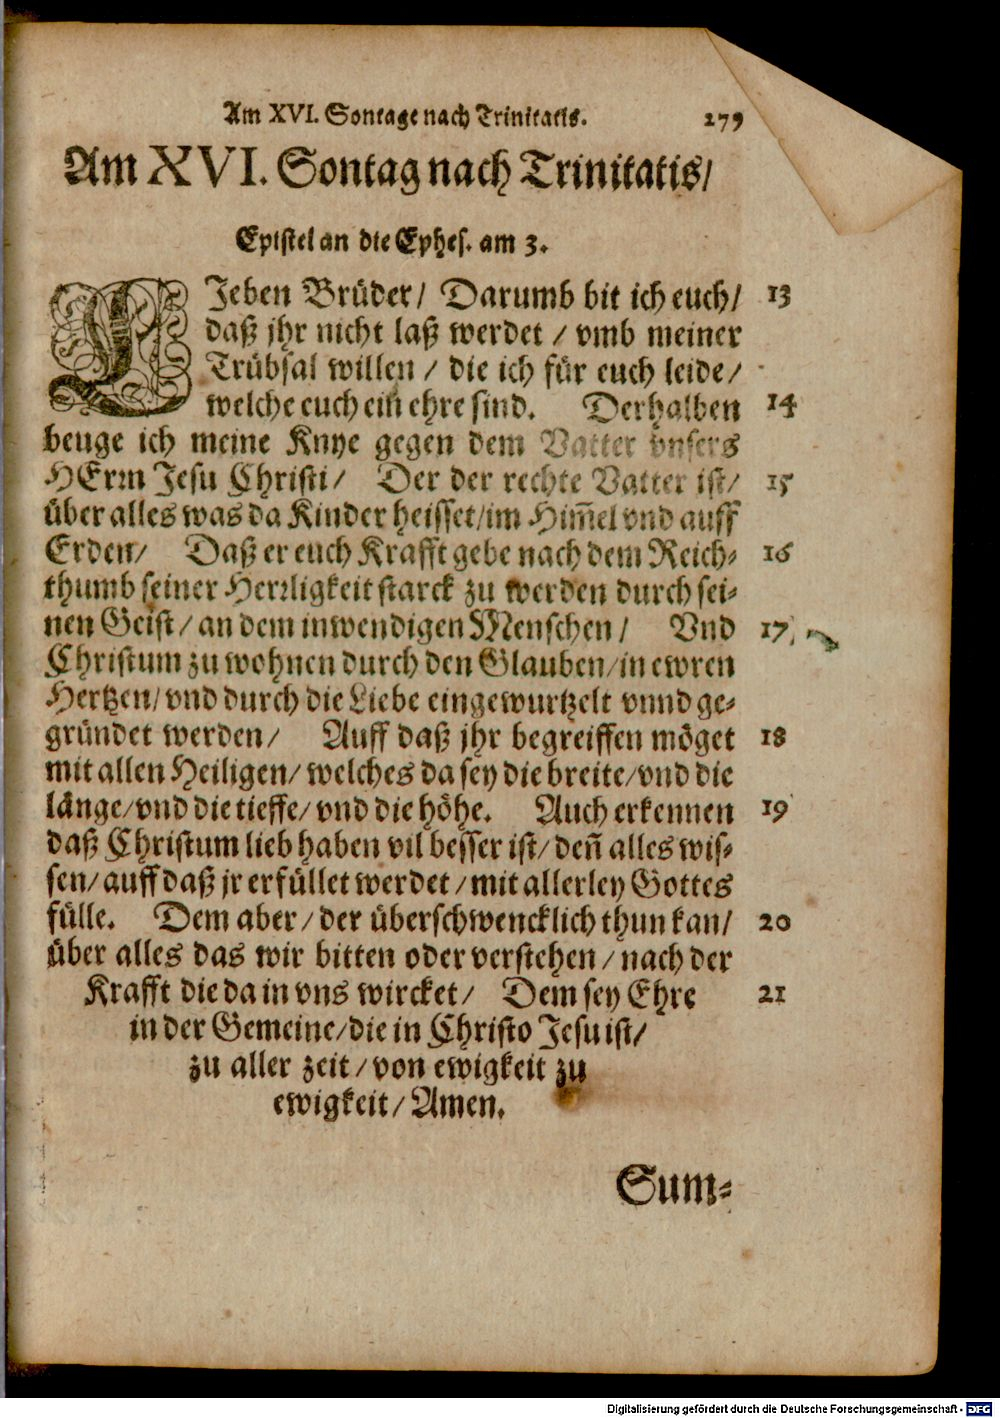 Am XVI. Sontage nach Trinitatis. 279
Am XVI. Sontag nach Trinitatis/
Epistel an die Ephes. am 3.
LJeben Brüder/ Darumb bit ich euch/ 13
daß jhr nicht laß werdet / vmb meiner
Trübsal willen / die ich für euch leide/
welche euch ein ehre sind. Derhalben 14
beuge ich meine Knye gegen dem Vatter vnsers
HErrn Jesu Christi/ Der der rechte Vatter ist/ 15
über alles was da Kinder heisset/im Him̃el vnd auff
Erden/ Daß er euch Krafft gebe nach dem Reich- 16
thumb seiner Herrligkeit starck zu werden durch sei-
nen Geist/ an dem inwendigen Menschen/ Vnd 17
Christum zu wohnen durch den Glauben/in ewren
Hertzen/ vnd durch die Liebe eingewurtzelt vnnd ge-
gründet werden/ Auff daß jhr begreiffen möget 18
mit allen Heiligen/ welches da sey die breite/vnd die
länge/vnd die tieffe/ vnd die höhe. Auch erkennen 19
daß Christum lieb haben vil besser ist/ deñ alles wis-
sen/ auff daß jr erfüllet werdet / mit allerley Gottes
fülle. Dem aber/ der überschwencklich thun kan/ 20
über alles das wir bitten oder verstehen / nach der
Krafft die da in vns wircket/ Dem sey Ehre 21
in der Gemeine/die in Christo Jesu ist/
zu aller zeit / von ewigkeit zu
ewigkeit/ Amen.
Sum-
Digitalisierung gefördert durch die Deutsche Forschungsgemeinschaft - DFG